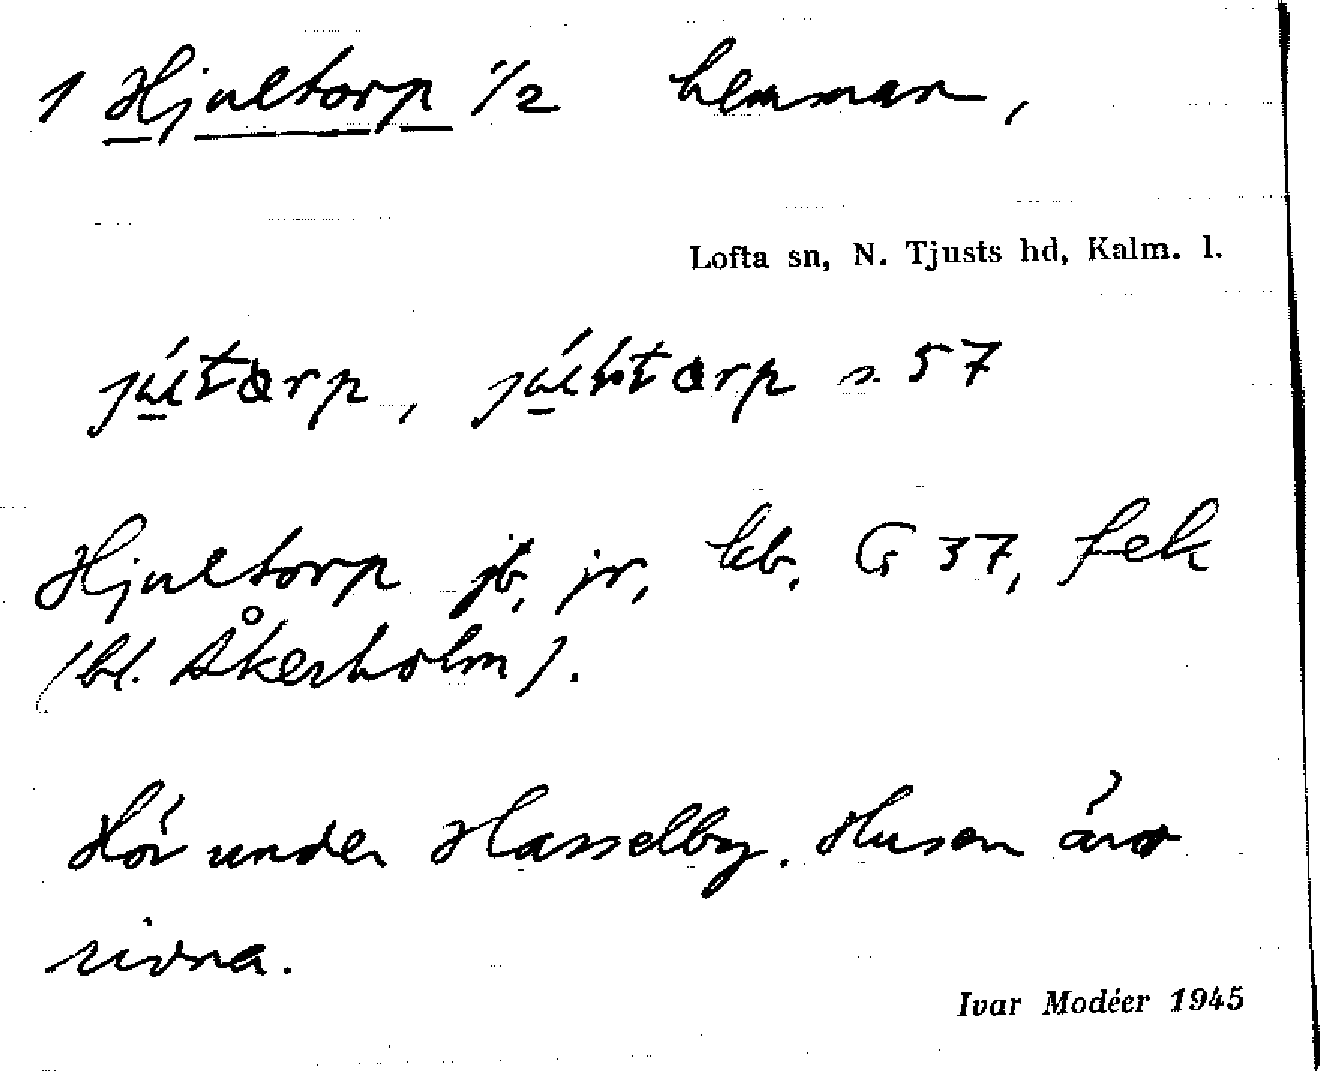 1 Hjultorp 1/2 hemman,
Lofta sn, N. Tjusts hd, Kalm. l.
s. 57
Hjultorp jb, jr, kb, G 37, fek
(bl. Åkerholm).
Hör under Hasselby. Husen äro
rivna.
Ivar Modéer 1945